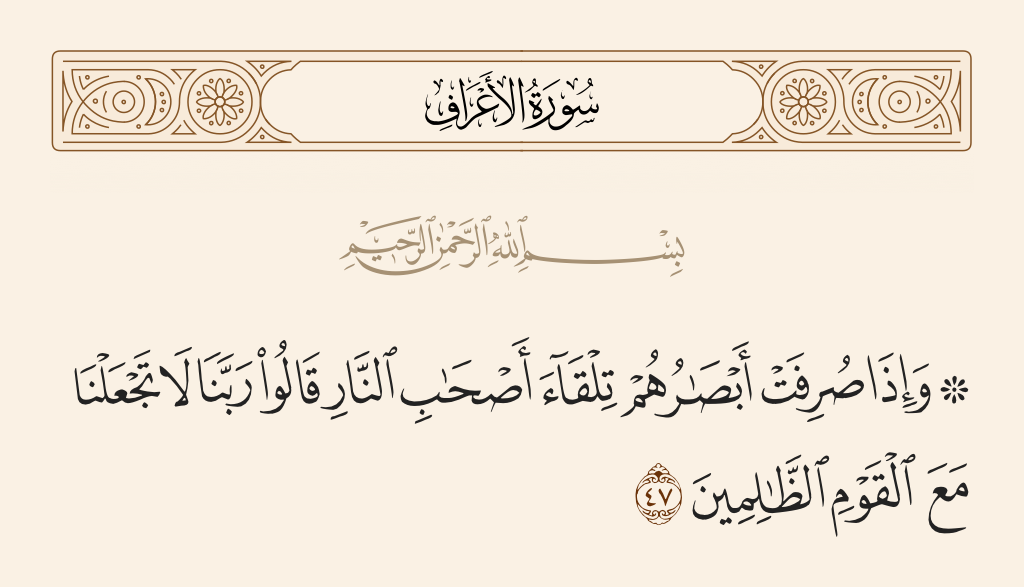 سُورَةُ الأَعْرَافِ
بِسْمِ ٱللَّهِ ٱلرَّحْمَٰنِ ٱلرَّحِيمِ
۞ وَإِذَا صُرِفَتْ أَبْصَٰرُهُمْ تِلْقَآءَ أَصْحَٰبِ ٱلنَّارِ قَالُوا۟ رَبَّنَا لَا تَجْعَلْنَا
مَعَ ٱلْقَوْمِ ٱلظَّٰلِمِينَ ٤٧